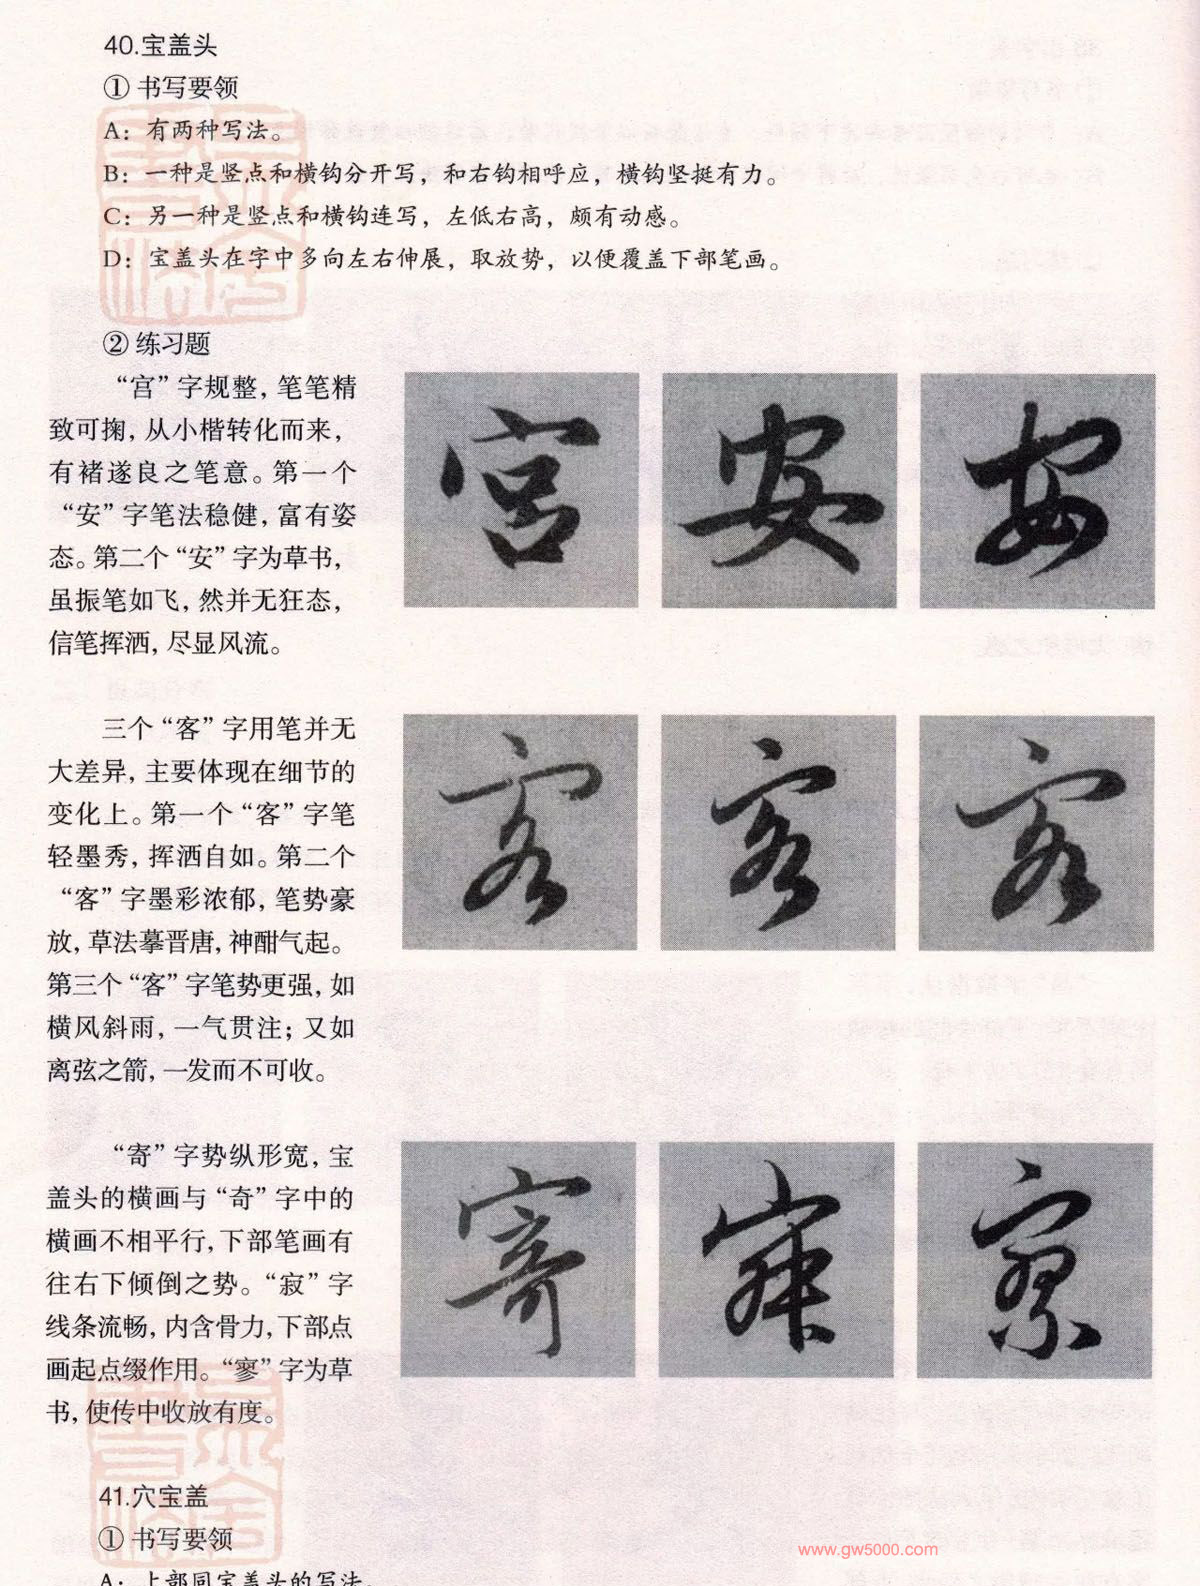 40.宝盖头
① 书写要领
A：有两种写法。
B：一种是竖点和横钩分开写，和右钩相呼应，横钩坚挺有力。
C：另一种是竖点和横钩连写，左低右高，颇有动感。
D：宝盖头在字中多向左右伸展，取放势，以便覆盖下部笔画。
② 练习题
“宫”字规整，笔笔精
致可掬，从小楷转化而来，
有褚遂良之笔意。第一个
“安”字笔法稳健，富有姿
态。第二个“安”字为草书，
虽振笔如飞，然并无狂态，
信笔挥洒，尽显风流。
宫 安 安
三个“客”字用笔并无
大差异，主要体现在细节的
变化上。第一个“客”字笔
轻墨秀，挥洒自如。第二个
“客”字墨彩浓郁，笔势豪
放，草法摹晋唐，神酣气起。
第三个“客”字笔势更强，如
横风斜雨，一气贯注；又如
离弦之箭，一发而不可收。
客 客 客
“寄”字势纵形宽，宝
盖头的横画与“奇”字中的
横画不相平行，下部笔画有
往右下倾倒之势。“寂”字
线条流畅，内含骨力，下部点
画起点缀作用。“寥”字为草
书，使传中收放有度。
寄 寂 寥
41.穴宝盖
① 书写要领
A：上部同宝盖头的写法。
www.gw5000.com